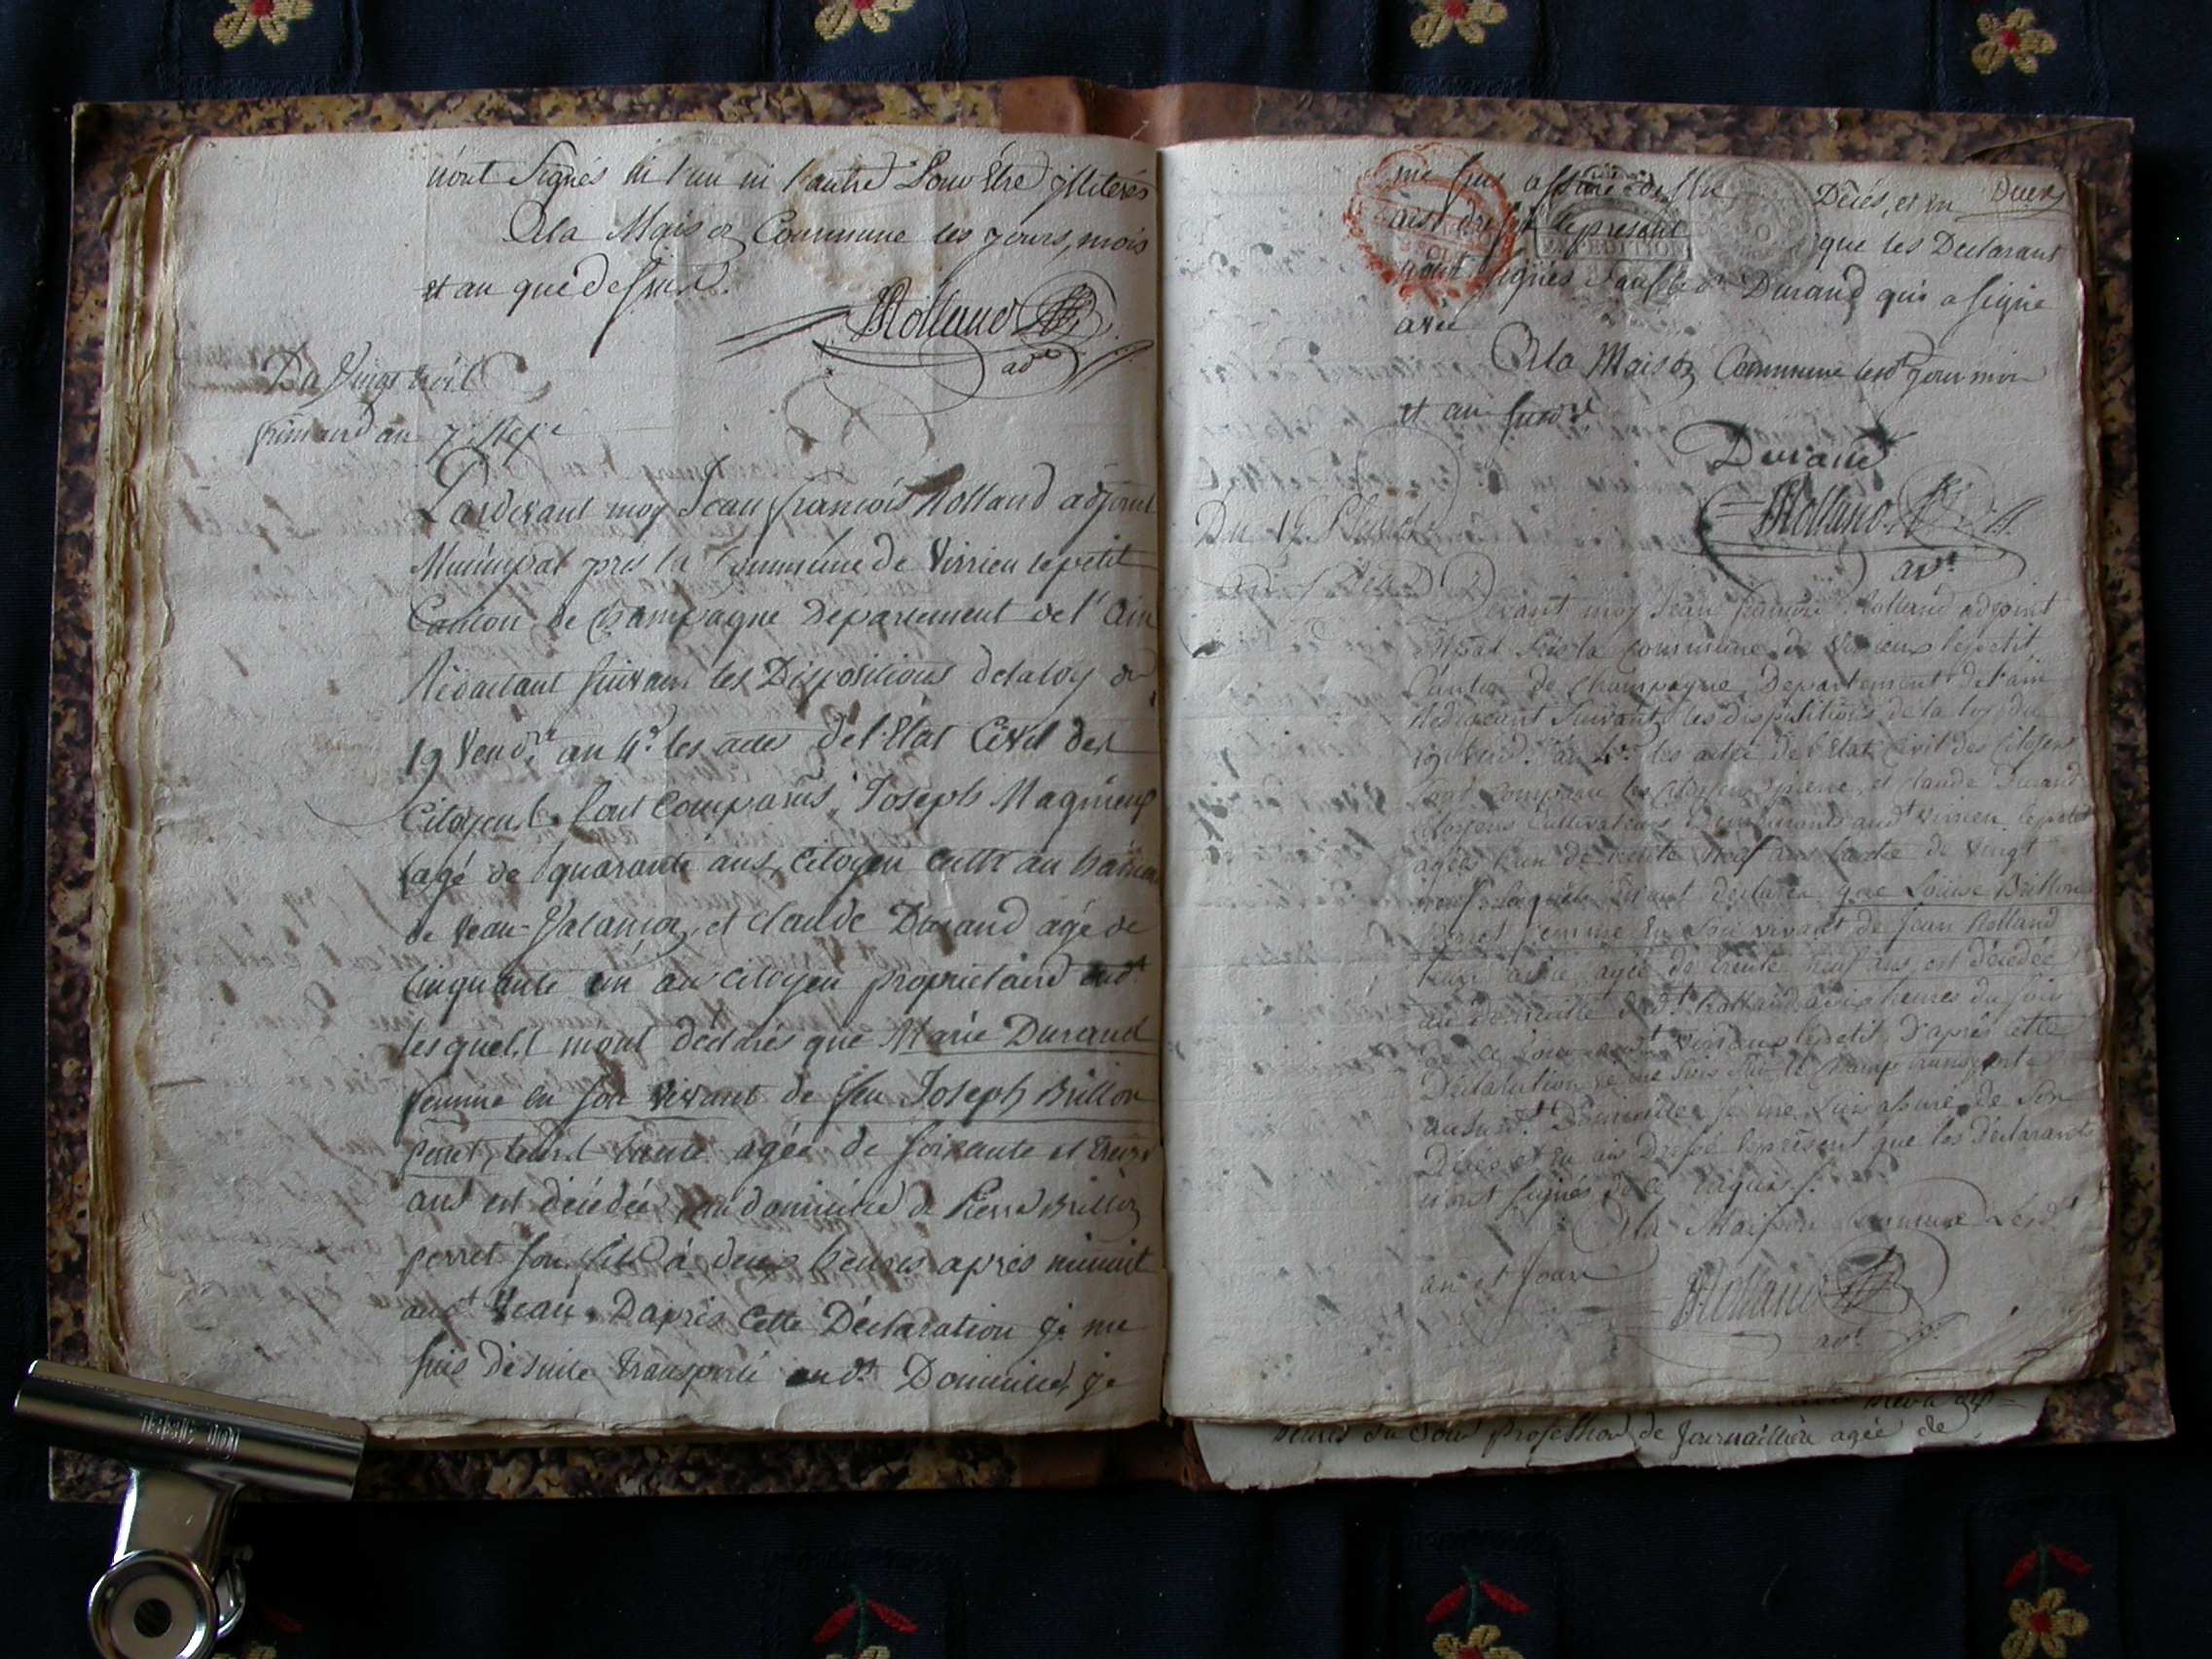 n'ont signés ni l'un ni l'autre Pour Etre ylliterés
A la Maison Commune les jours, mois
et an que dessus.
JRolland
adt
Du Vingt huit
frimaire an 7e Repe
Pardevant moy Jean françois Rolland adjoint
Municipal prés la Commune de Virrieu lepetit
Canton de Champagne Departement de l'Ain
Rédactant suivant les Dispositions delaloy du
19 Vendre an 4e les actes de l'Etat Civil des
Citoyens. Sont Comparus, Joseph Magnieux
agé de quarante ans, Citoyen cultr au hameau
de et claude Durand agé de
Cinquante un an Citoyen propriétaire audt
lesquels mont déclarés que Marie Durand
femme en son vivant de feu Joseph Brillon
perret, agée de soixante et treize
ans est décédée au domicile de Pierre Brillon
perret son fils à deux heures apres minuit
audt D'aprés Cette Déclaration je me
suis de suite transporté audt Domicile, je
me suis assuré de son Décés, et en Duerf
ais dressé le present que les Declarant
n'ont signés sauf led Durand qui a signé
avec
A la Maison Commune lesdt jour mois
et an susdt
EXPEDITION
Durand
JRolland
adt
Du 19 Pluvse
an 7
Devant moy Jean françois Rolland adjoint
Mpal Prés la Commune de Virieux lepetit
Canton de Champagne, Departement de l'ain
Redigeant Suivant les dispositions de la loy du
19 Vend. an 4e les actes de l'Etat Civil des Citoyens
Sont Comparu les Citoyens pierre, et Claude Durand
Citoyens Cultivateurs Demeurants audt Virrieu lepetit
agées l'un de trente neuf ans lautre de vingt
neuf lesquels m'ont declarée que Louise Brillon
Perret femme En son vivant de Jean Rolland
agée de trente neuf ans est décédée
au domicille dudt Rolland a six heures du soir
de ce Jour audt Virrieux lepetit, D'aprés cette
Déclaration je me suis sur le Champ transporté
aususdt Domicile je me suis assuré de Son
Décés et en ais Dressé le présent que les déclarants
n'ont signés de ce requis.
A la Maison Commune Lesdt
an et Jour
JRolland
adt
heures du Soir profession de Journaillière agée de